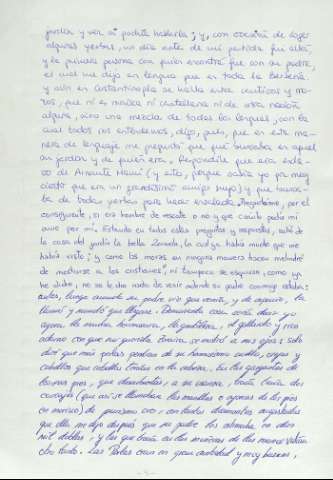 jardín y ver si podría hablarla; y, con ocasión de coger
algunas yerbas, un día antes de mi partida fui allá,
y la primera persona con quien encontré fue con su padre,
el cual me dijo en lengua que en toda la Berbería
y aún en Costantinopla se halla entre cautivos y mo-
ros, que ni es morisca ni castellana ni de otra nación
alguna, sino una mezcla de todas las lenguas, con la
cual todos nos entendemos; digo, pues, que en esta ma-
nera de lenguaje me preguntó que qué buscaba en aquel
su jardín y de quién era. Respondíle que era escla-
vo de Arnaute Mamí (y esto, porque sabía yo por muy
cierto que era un grandísimo amigo suyo) y que busca-
ba de todas yerbas para hacer ensalada. Preguntóme, por el
consiguiente, si era hombre de rescate o no y que cuánto pedía mi
amo por mí. Estando en todas estas preguntas y respuestas, salió de
la casa del jardín la bella Zoraida, la cual ya había mucho que me
había visto; y como las moras en ninguna manera hacen melindre
de mostrarse a los cristianos, ni tampoco se esquivan, como ya
he dicho, no se le dio nada de venir adonde su padre conmigo estaba:
antes, luego cuando su padre vio que venía, y de espacio, la
llamó y mandó que llegase. Demasiada cosa sería decir yo
agora la mucha hermosura, la gentileza, el gallardo y rico
adorno con que mi querida Zoraida se mostró a mis ojos: sólo
diré que más perlas pendían de su hermosísimo cuello, orejas y
cabellos que cabellos tenía en la cabeza. En las gargantas de
los sus pies, que descubiertas, a su usanza, traía, traía dos
carcajes (que así se llamaban las manillas o ajorcas de los pies
en morisco) de purísimo oro, con tantos diamantes engastados
que ella me dijo después que su padre los estimaba en diez
mil doblas, y las que traía en las muñecas de las manos valían
otro tanto. Las perlas eran en gran cantidad y muy buenas,